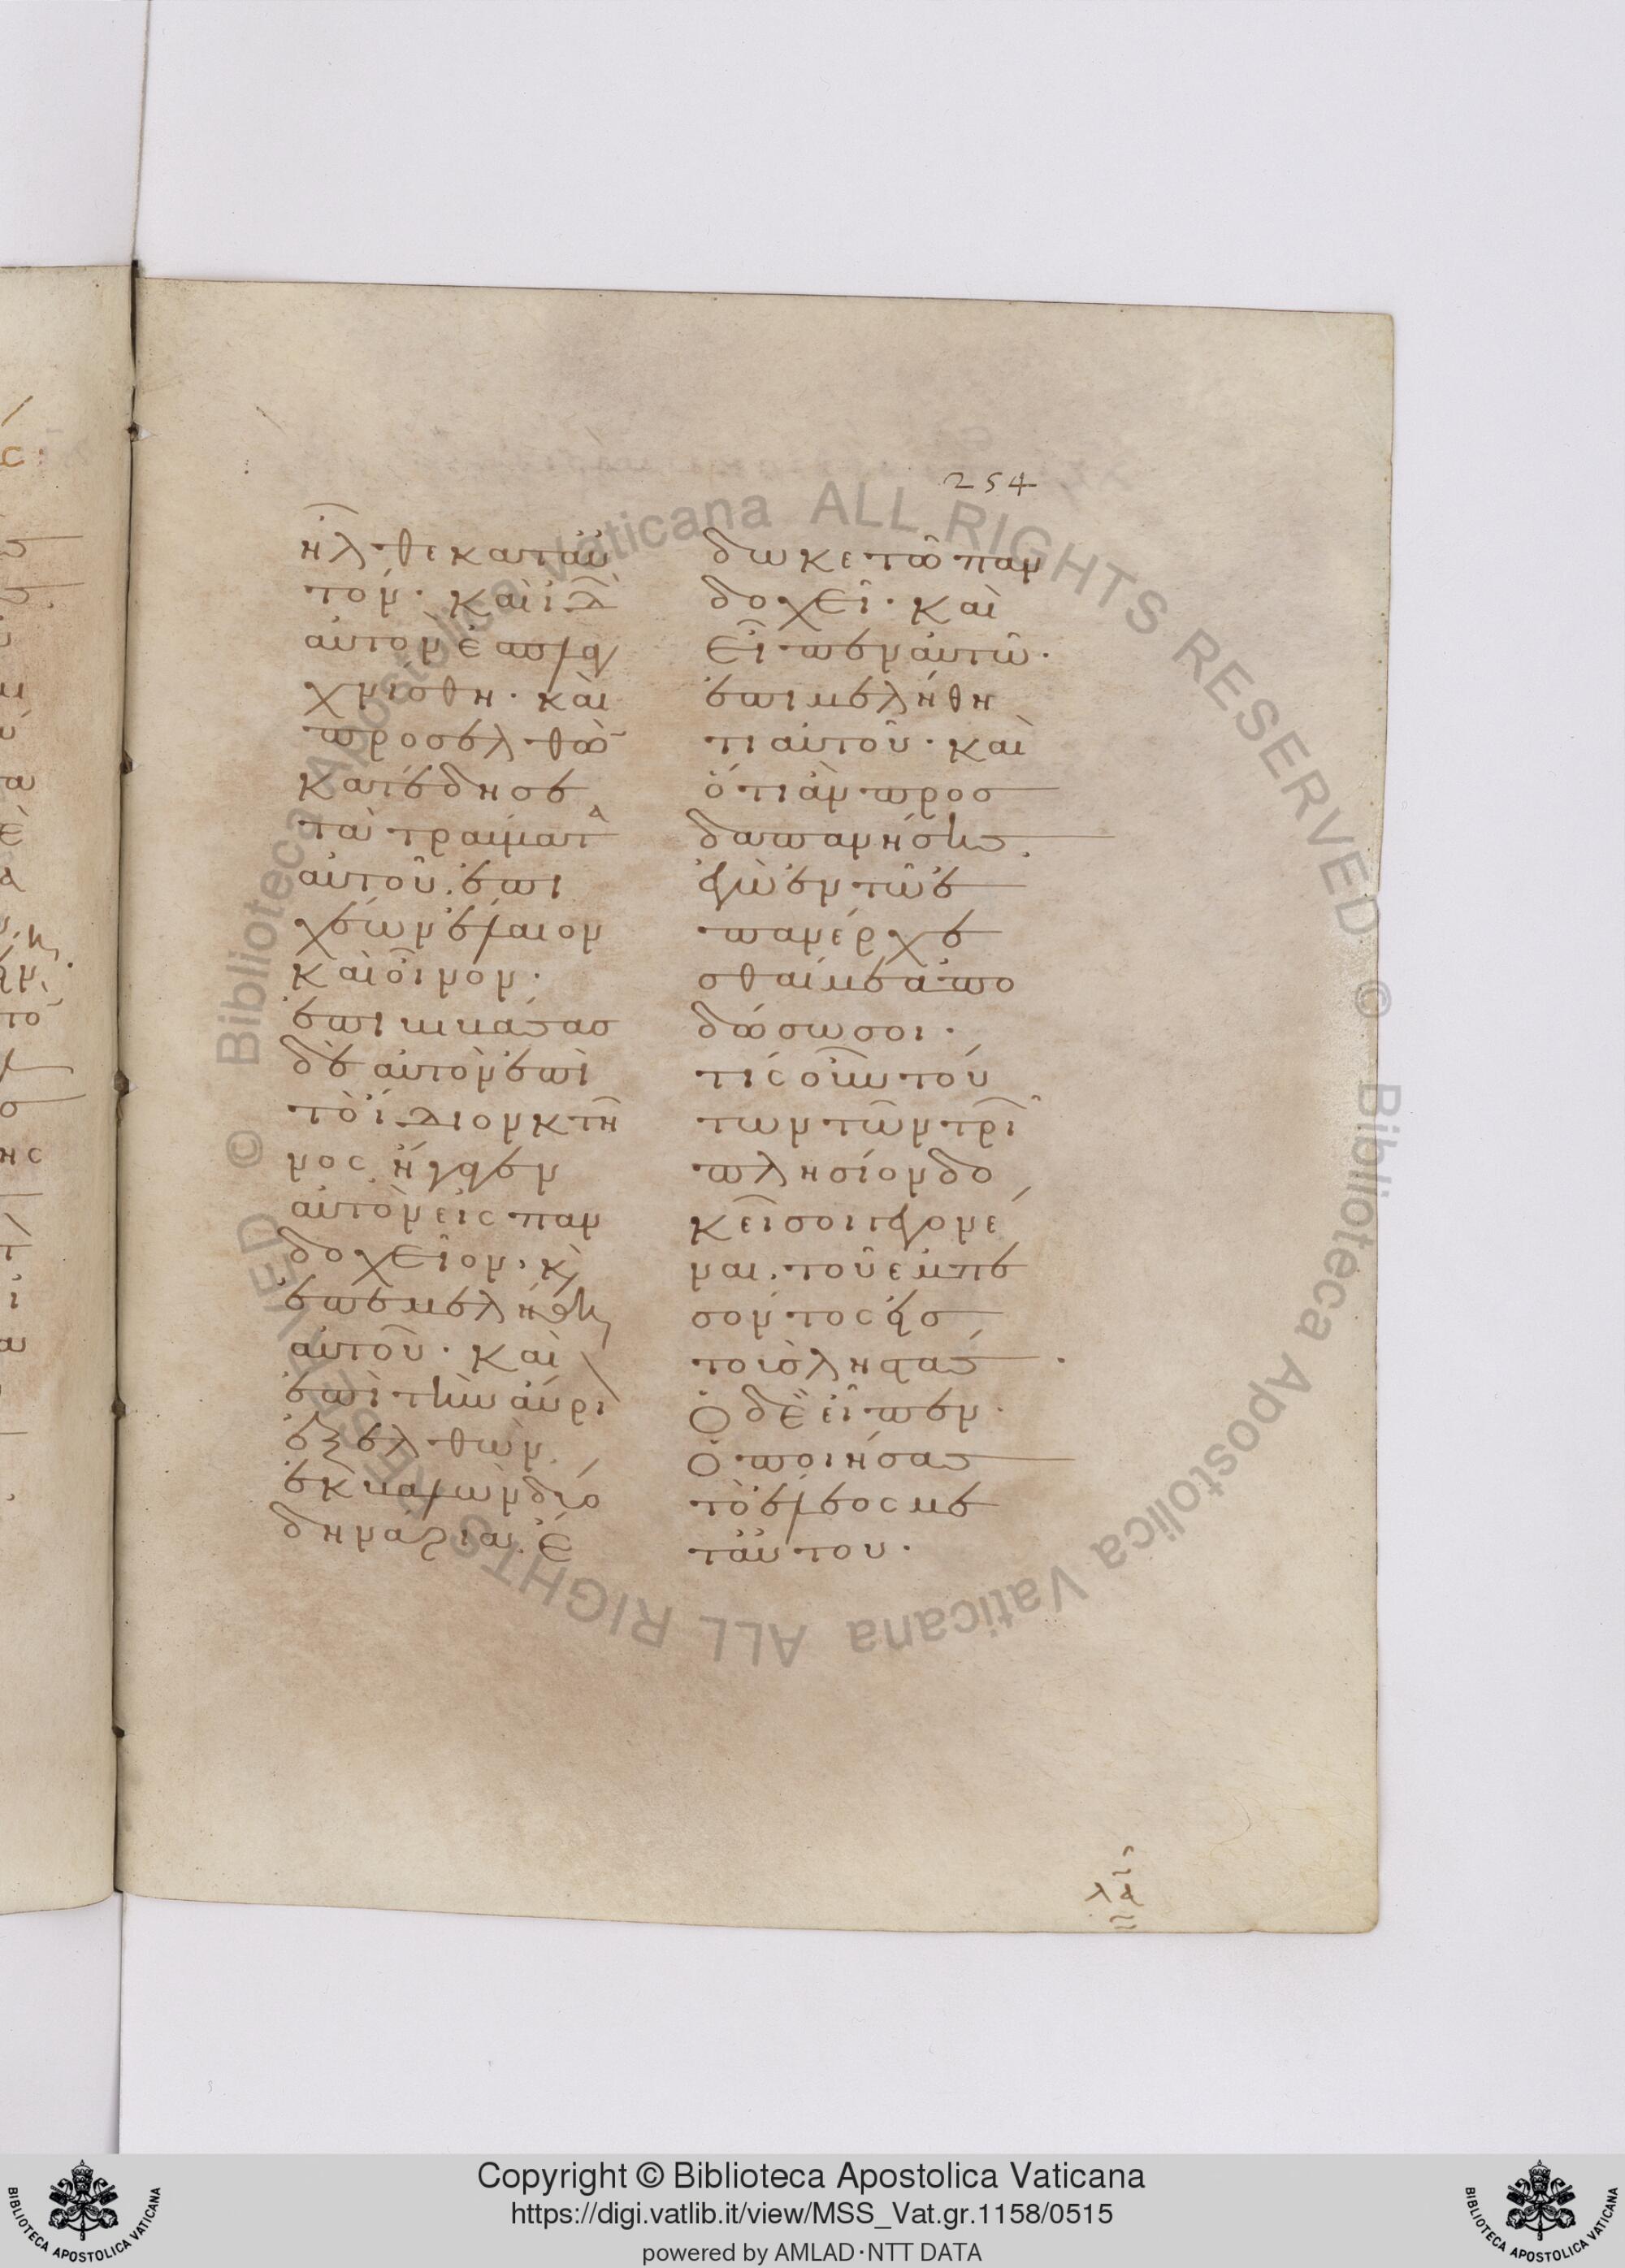 254
ἦλθε κατ' αὐ
τόν· καὶ ἰδὼν
αὐτὸν ἐσπλα
χνίσθη· καὶ
προσελθὼ
κατέδησε
τὰ τραύματα
αὐτοῦ· ἐπι
χέων ἔλαιον
καὶ οἶνον·
ἐπιβιβάσας
δὲ αὐτὸν ἐπὶ
τὸ ἴδιον κτῆ
νος ἤγαγεν
αὐτὸν εἰς παν
δοχεῖον· κ
ἐπεμελήθη
αὐτοῦ· καὶ
ἐπὶ τὴν αὔρι
ἐξελθὼν
ἐκβαλὼν δύο
δηνάρια· ἔ
δωκε τῶ παν
δοχεῖ· καὶ
εἶπεν αὐτῶ·
ἐπιμελήθη
τι αὐτοῦ· καὶ
ὅτι ἂν προσ
δαπανήσης
ἐγὼ ἐν τῶ ἐ
πανέρχε
σθαί με ἀπο
δώσω σοι·
τίς οὖν τού
των τῶν τριῶ
πλησίον δο
κεῖ σοι γεγονέ
ναι· τοῦ ἐμπε
σόντος εἰς
τοὺς ληστάς·
Ὁ δὲ εἶπεν·
Ὁ ποιήσας
τὸ ἔλεος με
τ' αὐτοῦ·
λα
Copyright © Biblioteca Apostolica Vaticana
https://digi.vatlib.it/view/MSS_Vat.gr.1158/0515
powered by AMLAD·NTT DATA
BIBLIOTECA APOSTOLICA VATICANA
BIBLIOTECA APOSTOLICA VATICANA
© Biblioteca Apostolica Vaticana ALL RIGHTS RESERVED
© Biblioteca Apostolica Vaticana ALL RIGHTS RESERVED